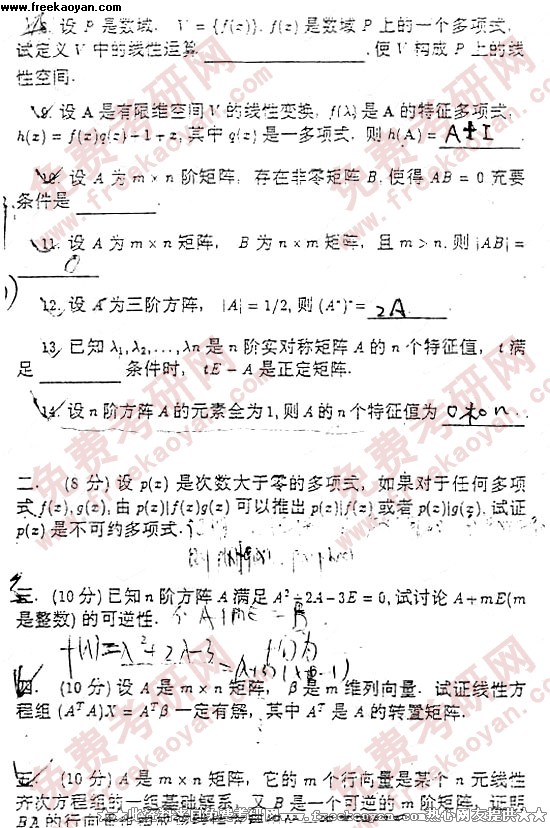 www.freekaoyan.com
8. 设 P 是数域. V = {f(z)}. f(z) 是数域 P 上的一个多项式,
试定义 V 中的线性运算 ________ ,使 V 构成 P 上的线
性空间.
9. 设 A 是有限维空间 V 的线性变换, f(λ) 是 A 的特征多项式,
h(z) = f(z)q(z)+1+z, 其中 q(z) 是一多项式, 则 h(A) = A+I .
10. 设 A 为 m × n 阶矩阵, 存在非零矩阵 B, 使得 AB = 0 充要
条件是 ________.
11. 设 A 为 m × n 矩阵, B 为 n × m 矩阵, 且 m > n. 则 |AB| =
0
12. 设 A 为三阶方阵, |A| = 1/2, 则 (A*)* = 2A .
13. 已知 λ1, λ2, ..., λn 是 n 阶实对称矩阵 A 的 n 个特征值, t 满
足 ________ 条件时, tE − A 是正定矩阵.
14. 设 n 阶方阵 A 的元素全为 1, 则 A 的 n 个特征值为 0和n .
二. (8 分) 设 p(z) 是次数大于零的多项式, 如果对于任何多项
式 f(z), g(z), 由 p(z)|f(z)g(z) 可以推出 p(z)|f(z) 或者 p(z)|g(z). 试证
p(z) 是不可约多项式.
三. (10 分) 已知 n 阶方阵 A 满足 A²+2A−3E = 0, 试讨论 A+mE(m
是整数) 的可逆性.
f(λ)=λ²+2λ-3
=(λ+3)(λ-1)
四. (10 分) 设 A 是 m × n 矩阵, β 是 m 维列向量. 试证线性方
程组 (AᵀA)X = Aᵀβ 一定有解, 其中 Aᵀ 是 A 的转置矩阵.
五. (10 分) A 是 m × n 矩阵, 它的 m 个行向量是某个 n 元线性
齐次方程组的一组基础解系, 又 B 是一个可逆的 m 阶矩阵, 证明
BA 的行向量
免费考研网
www.freekaoyan.com